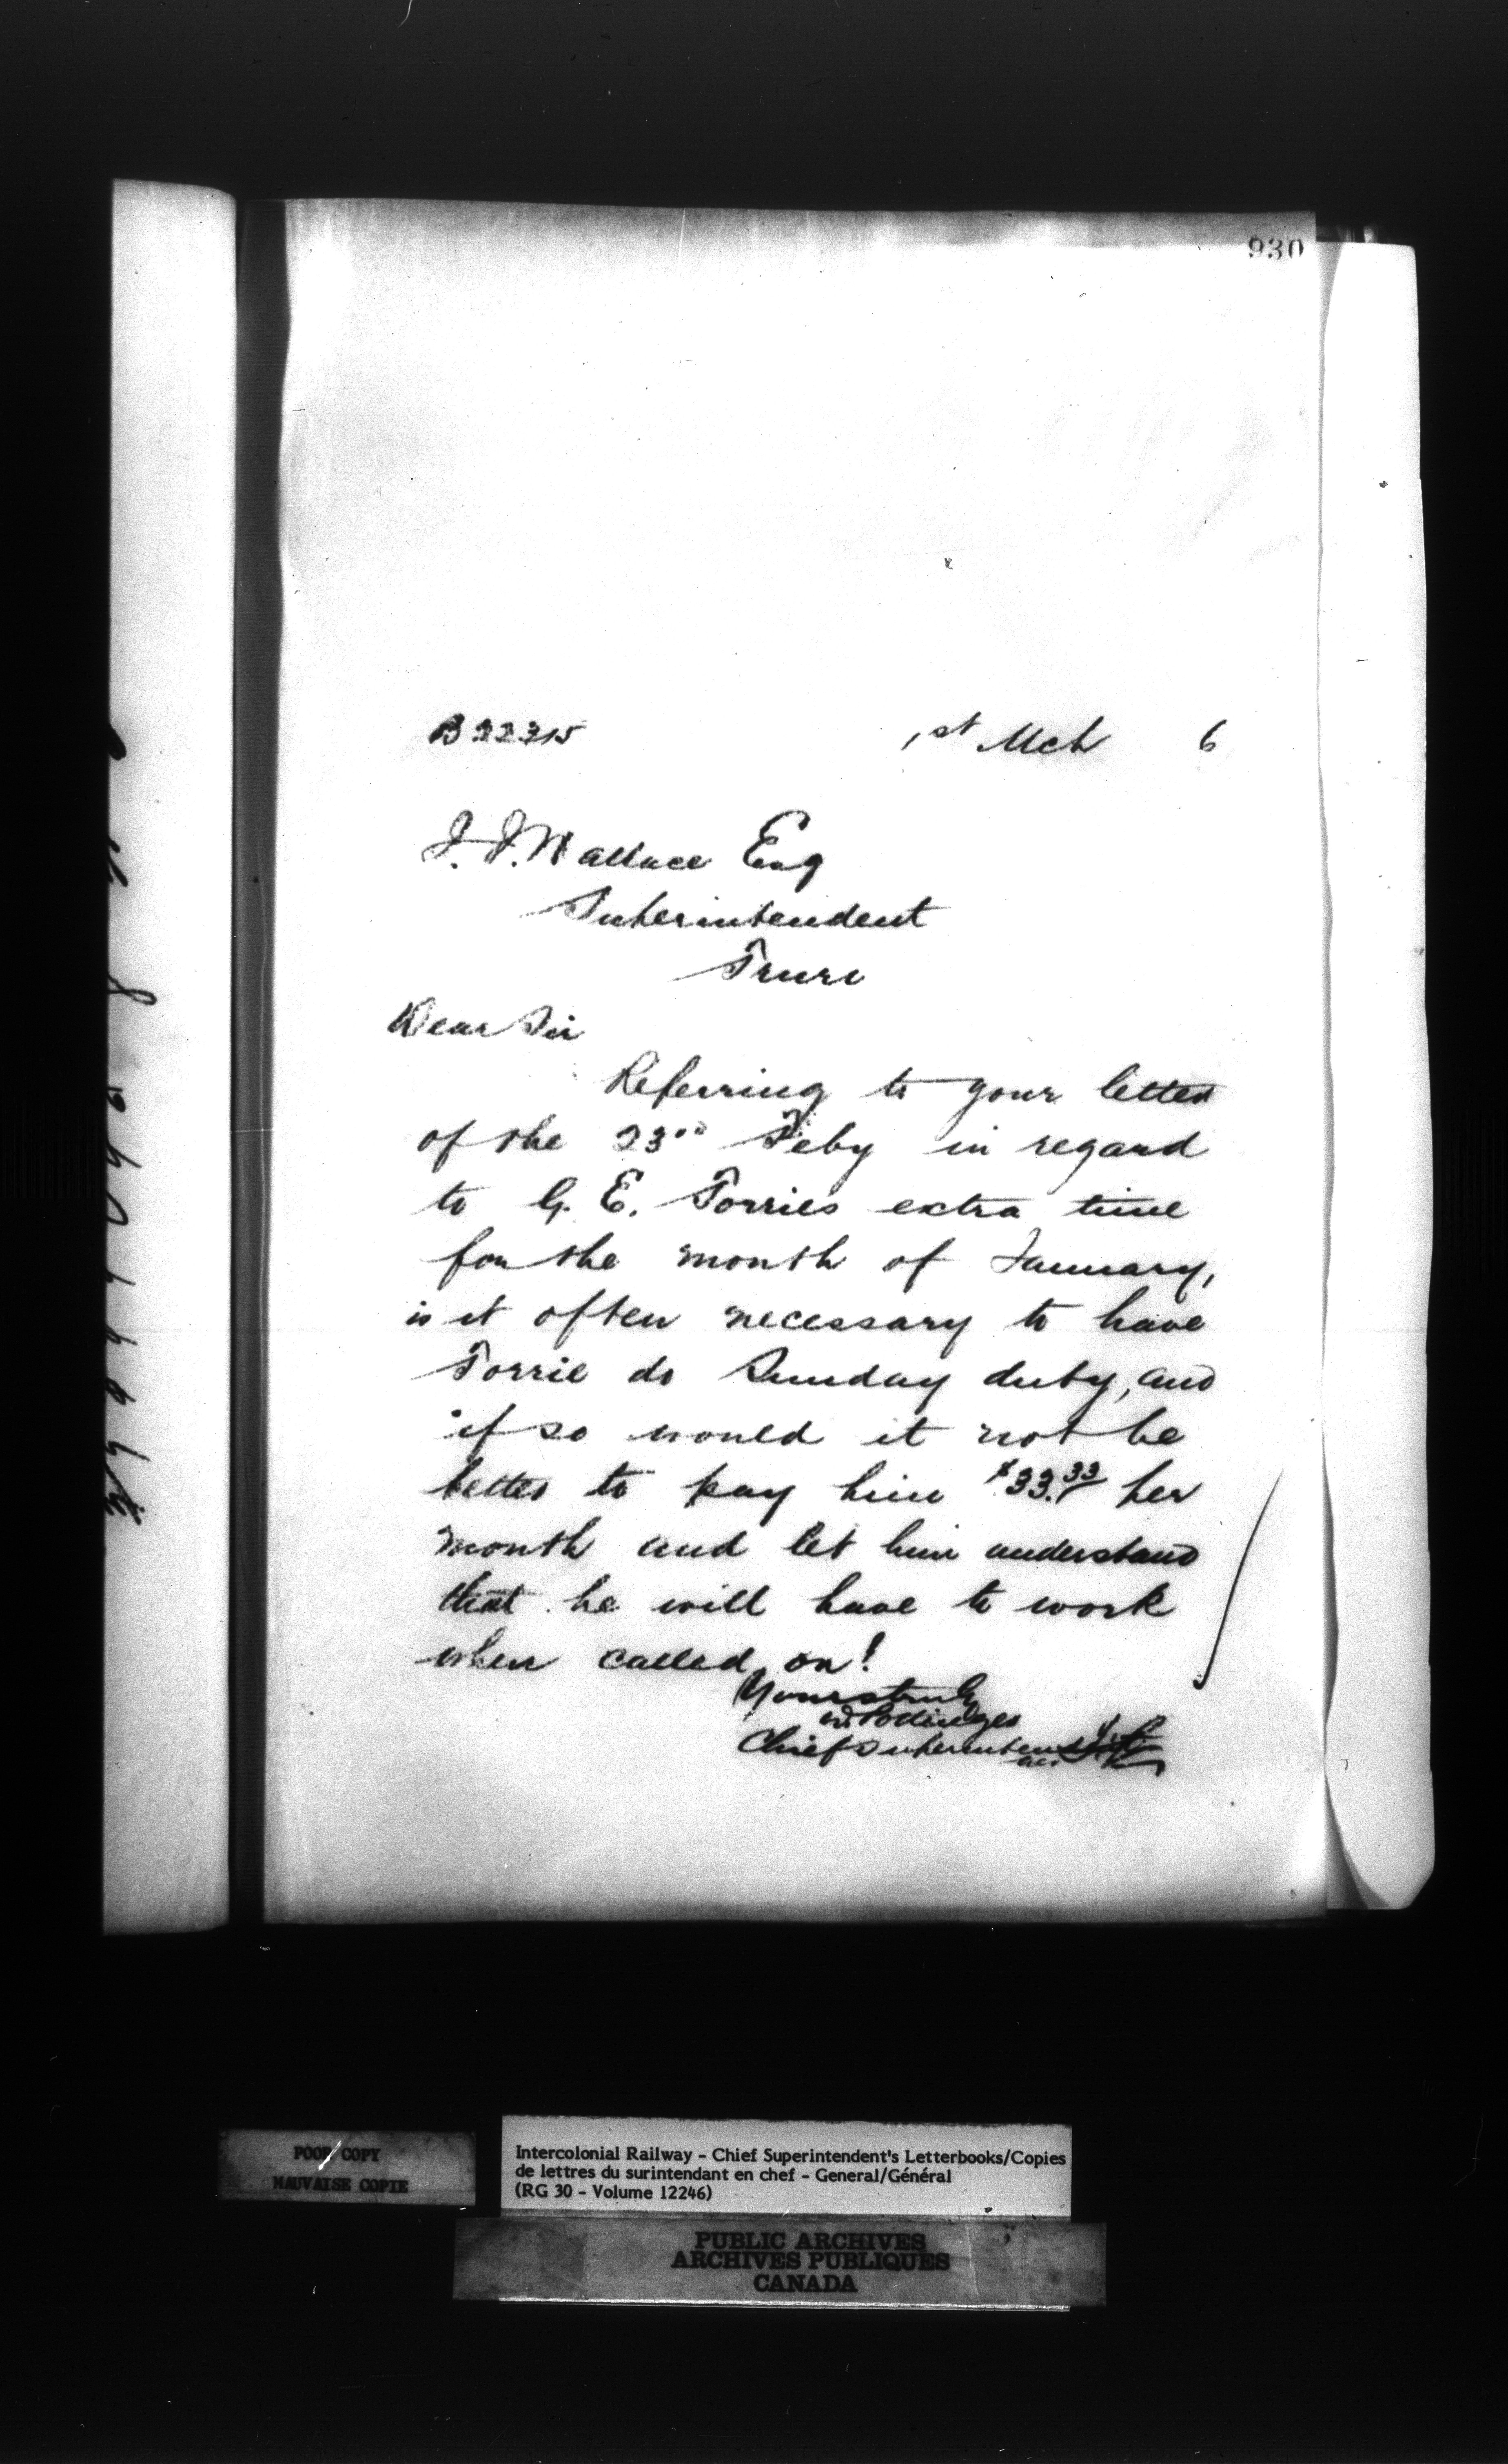 930
B 22315
1st Mch 6
J. J. Wallace Esq
Superintendent
Truro
Dear Sir
Referring to your letter
of the 23rd Feby in regard
to G. E. Torries extra time
for the month of January,
is it often necessary to have
Torrie do Sunday duty, and
if so would it not be
better to pay him $33.33 per
month and let him understand
that he will have to work
when called on!
Yours truly
D. Pottinger
Chief Superintendent
POOR COPY
MAUVAISE COPIE
Intercolonial Railway - Chief Superintendent's Letterbooks/Copies
de lettres du surintendant en chef - General/Général
(RG 30 - Volume 12246)
PUBLIC ARCHIVES
ARCHIVES PUBLIQUES
CANADA